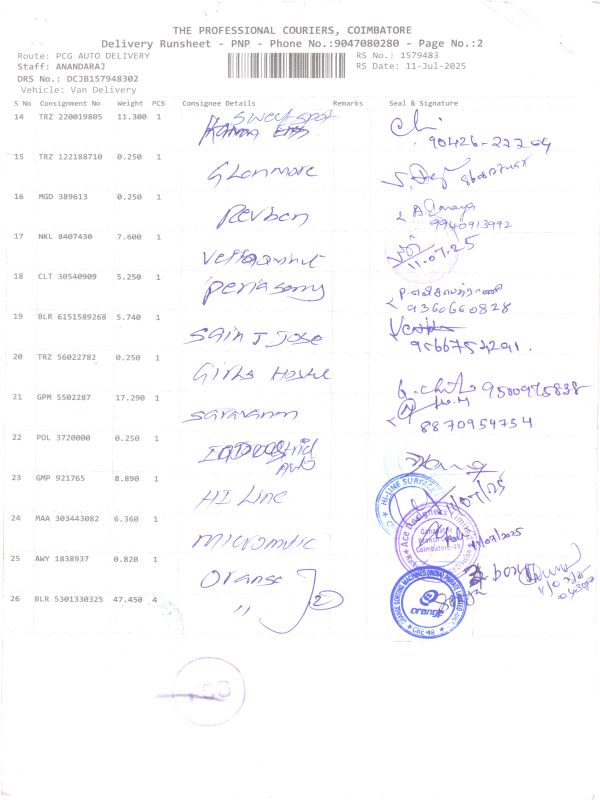 THE PROFESSIONAL COURIERS, COIMBATORE
Delivery Runsheet - PNP - Phone No.:9047080280 - Page No.:2
Route: PCG AUTO DELIVERY RS No.: 1579483
Staff: ANANDARAJ RS Date: 11-Jul-2025
DRS No.: DCJB157948302
Vehicle: Van Delivery
S No Consignment No Weight PCS Consignee Details Remarks Seal & Signature
14 TRZ 220019805 11.300 1 Sweet spot
90426-27704
15 TRZ 122188710 0.250 1 Glenmore
16 MGD 389613 0.250 1 Revben
9940913992
17 NKL 8407430 7.600 1
11.07.25
18 CLT 30540909 5.250 1 Periasamy
9360660828
19 BLR 6151589268 5.740 1 Saint Jose
9566757291.
20 TRZ 56022782 0.250 1 Girls Hostel
9500975838
21 GPM 5502287 17.290 1 Saravanan
8870954754
22 POL 3720000 0.250 1 Auto
23 GMP 921765 8.890 1 HI Line
HI-LINE SURFACE
24 MAA 303443082 6.360 1 Micromatic
Ace Designers Limited
Coimbatore
25 AWY 1838937 0.820 1 Orange
26 BLR 5301330325 47.450 4 " 2
orange